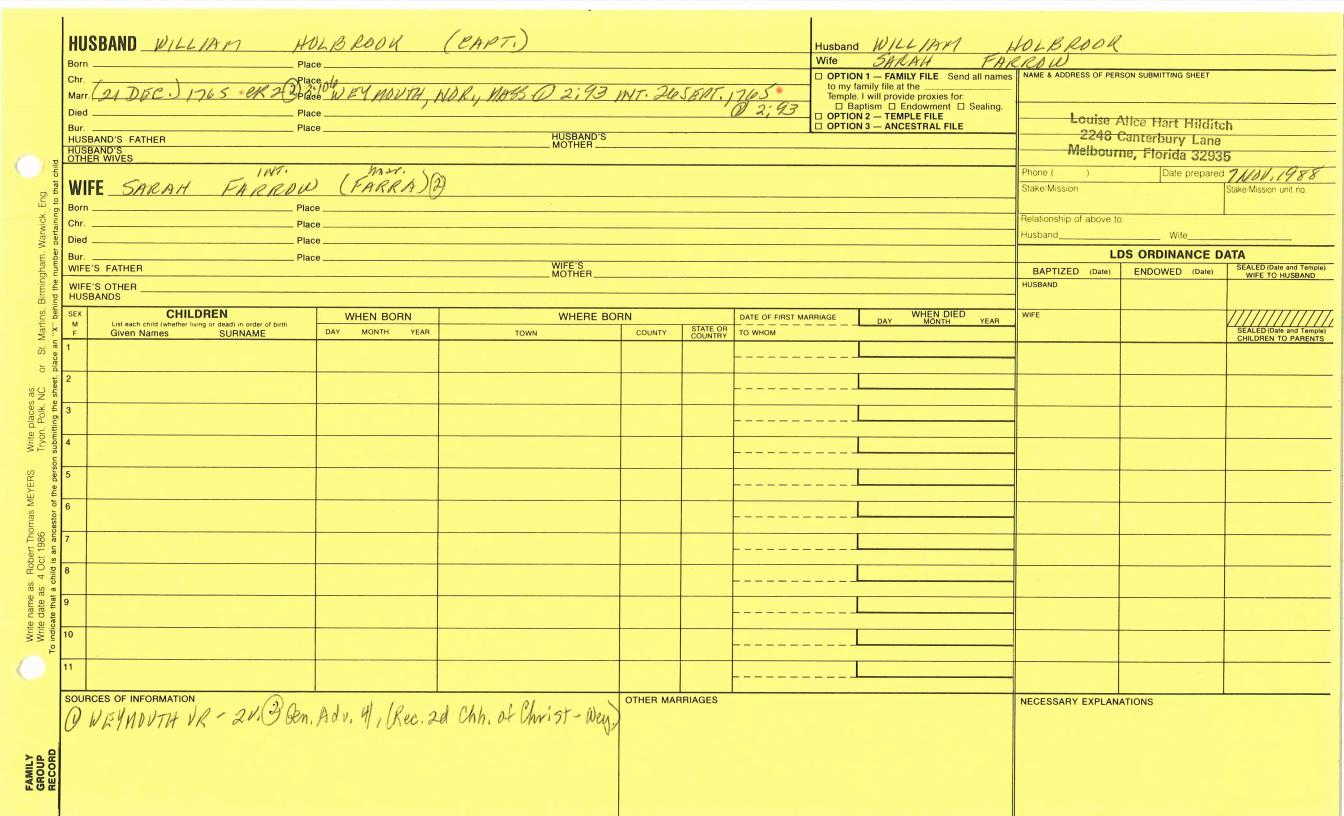 HUSBAND WILLIAM HOLBROOK (CAPT.)
Born Place
Chr. Place
Marr. (21 DEC.) 1765 CR 2 ② 2:106 Place WEYMOUTH, NOR., MASS ① 2:93 INT. 26 SEPT. 1765
① 2:93
Died Place
Bur. Place
HUSBAND'S FATHER HUSBAND'S MOTHER
HUSBAND'S OTHER WIVES
INT. mar.
WIFE SARAH FARROW (FARRA) ②
Born Place
Chr. Place
Died Place
Bur. Place
WIFE'S FATHER WIFE'S MOTHER
WIFE'S OTHER HUSBANDS
Husband WILLIAM HOLBROOK
Wife SARAH FARROW
☐ OPTION 1 — FAMILY FILE Send all names
to my family file at the
Temple. I will provide proxies for:
☐ Baptism ☐ Endowment ☐ Sealing.
☐ OPTION 2 — TEMPLE FILE
☐ OPTION 3 — ANCESTRAL FILE
NAME & ADDRESS OF PERSON SUBMITTING SHEET
Louise Alice Hart Hilditch
2248 Canterbury Lane
Melbourne, Florida 32935
Phone ( ) Date prepared 7 NOV. 1988
Stake/Mission Stake/Mission unit no.
Relationship of above to:
Husband Wife
LDS ORDINANCE DATA
BAPTIZED (Date) ENDOWED (Date) SEALED (Date and Temple) WIFE TO HUSBAND
HUSBAND
WIFE
SEALED (Date and Temple) CHILDREN TO PARENTS
SEX M F
CHILDREN
List each child (whether living or dead) in order of birth
Given Names SURNAME
WHEN BORN
DAY MONTH YEAR
WHERE BORN
TOWN COUNTY STATE OR COUNTRY
DATE OF FIRST MARRIAGE
TO WHOM
WHEN DIED
DAY MONTH YEAR
1
2
3
4
5
6
7
8
9
10
11
SOURCES OF INFORMATION
① WEYMOUTH VR - 2v. ② Gen. Adv. 4, (Rec. 2d Chh. of Christ - Wey.)
OTHER MARRIAGES
NECESSARY EXPLANATIONS
Write name as: Robert Thomas MEYERS Write places as: Tryon, Polk, NC or St. Martins, Birmingham, Warwick, Eng
Write date as: 4 Oct 1986
To indicate that a child is an ancestor of the person submitting the sheet, place an "X" behind the number pertaining to that child
FAMILY GROUP RECORD